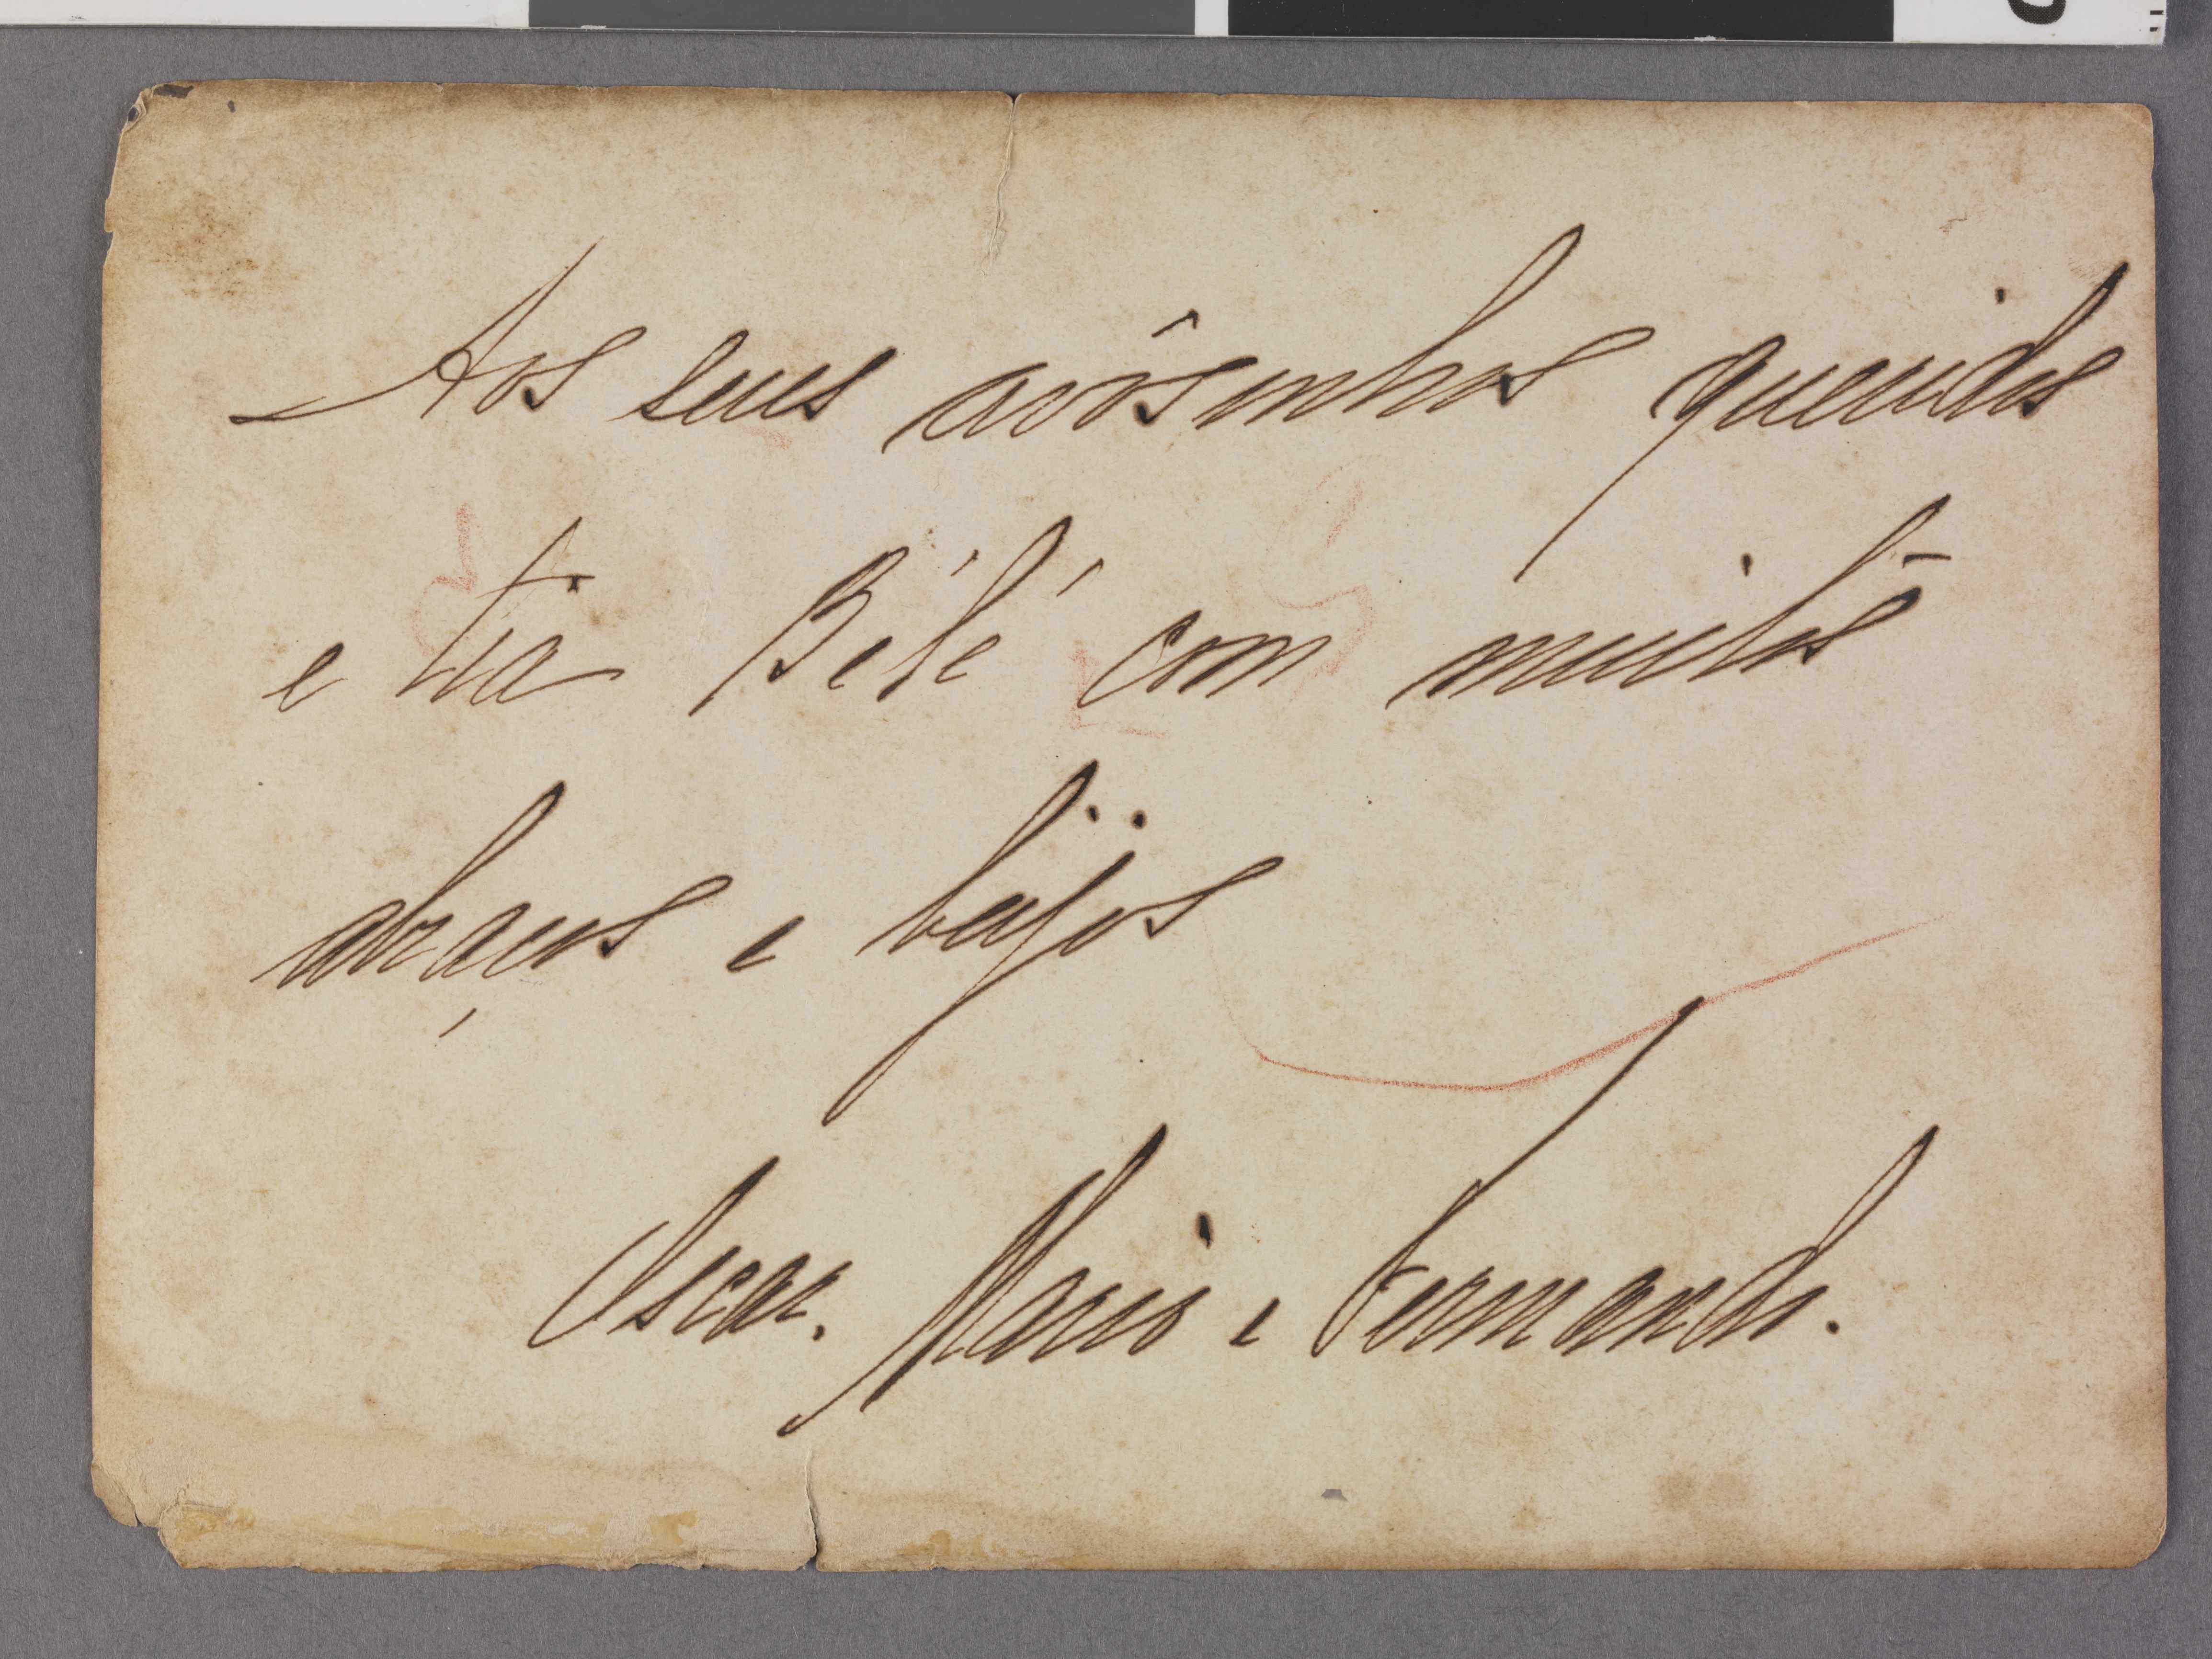 Aos seus avôsinhos queridos
e tia Bébé com muitos
abraços e beijos
Oscar, Mario e Fernando.